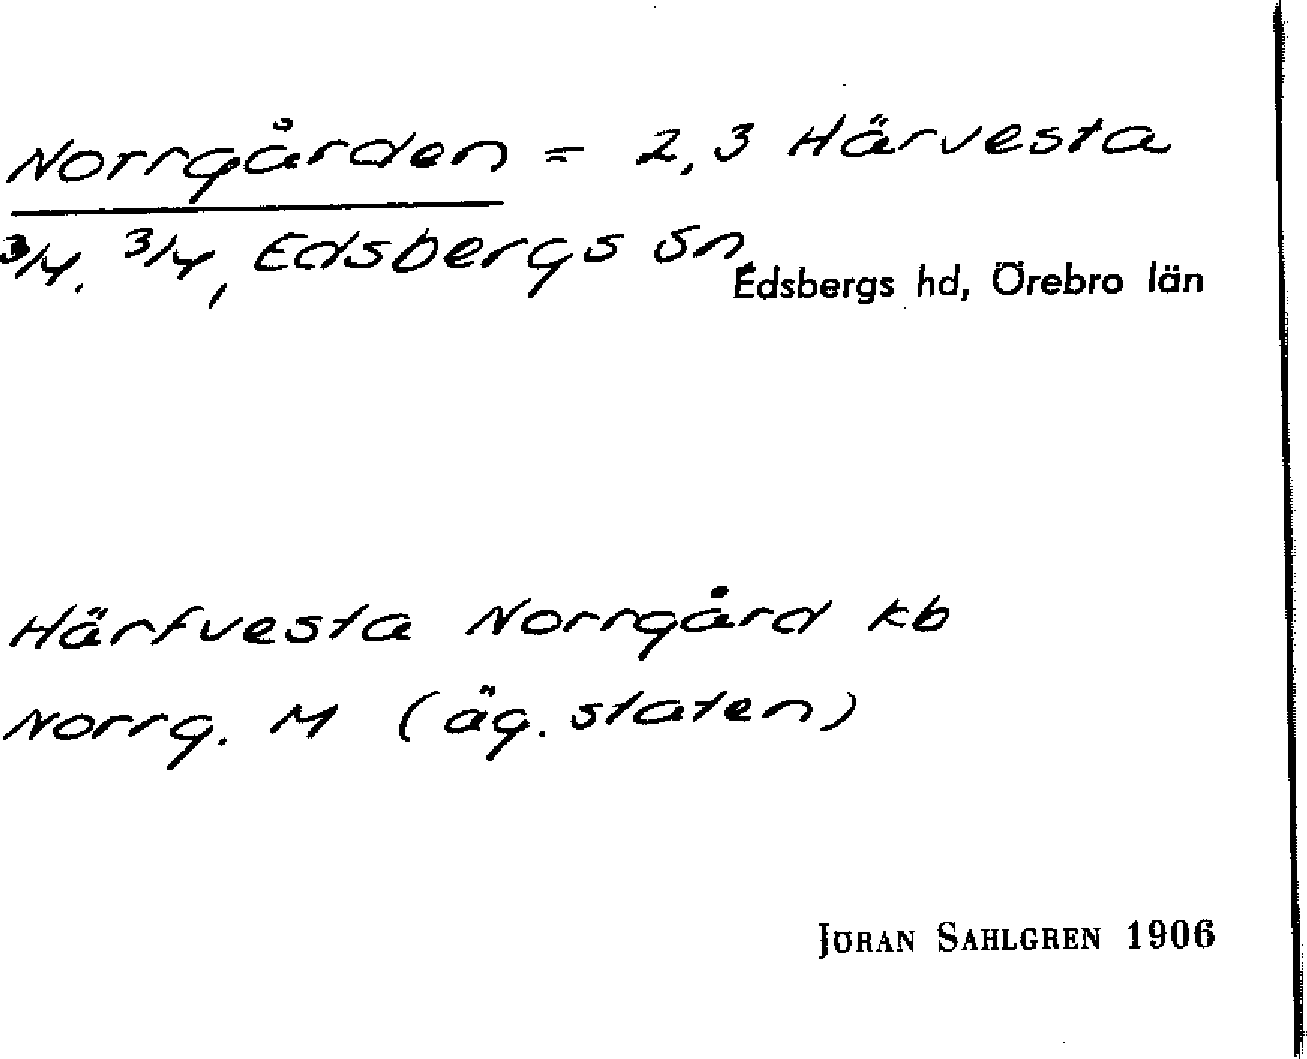 Norrgården = 2,3 Härvesta
3/4. 3/4, Edsbergs sn,
Edsbergs hd, Örebro län
Härfvesta Norrgård kb
Norrg. M (äg. staten)
JÖRAN SAHLGREN 1906